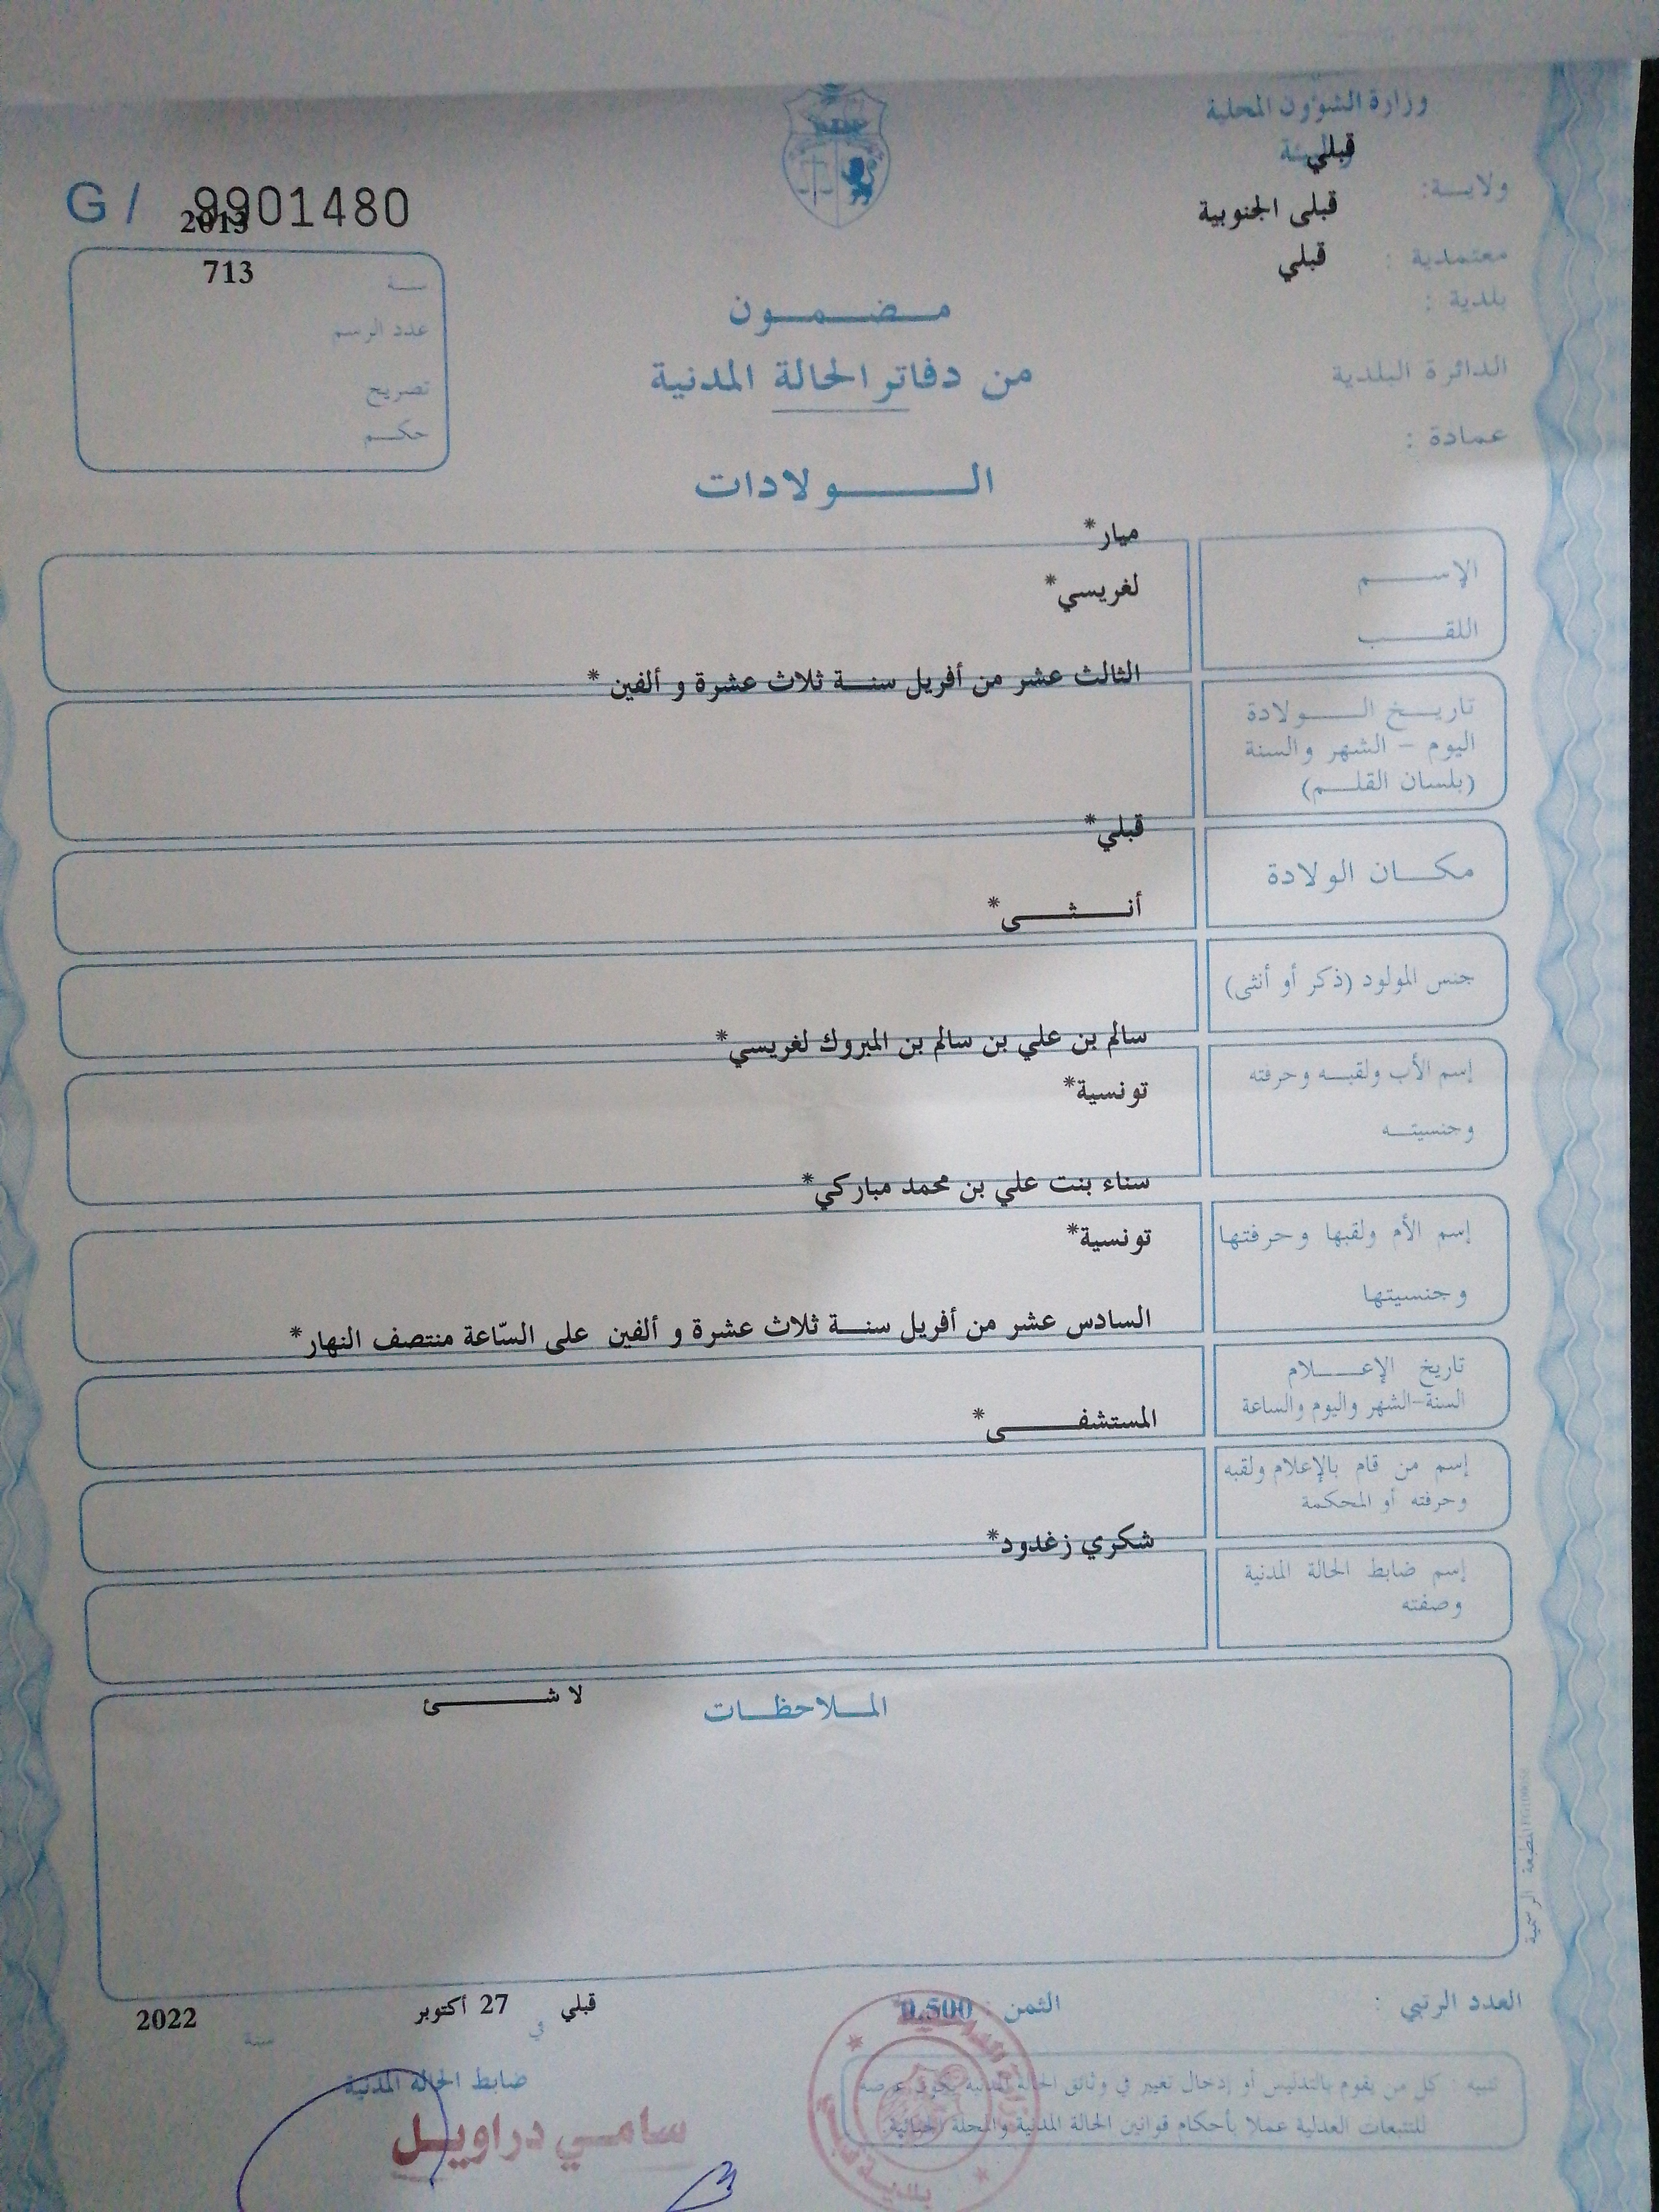 وزارة الشؤون المحلية
قبلي
ولايــة:
قبلى الجنوبية
معتمدية :
قبلي
بلدية :
الدائرة البلدية
عمادة :
G / 9901480
2013
713
سنة
عدد الرسم
تصريح
حكم
مضمون
من دفاتر الحالة المدنية
الولادات
الإسم
ميار*
اللقب
لغريسي*
تاريخ الولادة
اليوم - الشهر والسنة
(بلسان القلم)
الثالث عشر من أفريل سنة ثلاث عشرة و ألفين *
مكان الولادة
قبلي*
جنس المولود (ذكر أو أنثى)
أنثى*
إسم الأب ولقبه وحرفته
وجنسيته
سالم بن علي بن سالم بن المبروك لغريسي*
تونسية*
إسم الأم ولقبها وحرفتها
وجنسيتها
سناء بنت علي بن محمد مباركي*
تونسية*
تاريخ الإعلام
السنة-الشهر واليوم والساعة
السادس عشر من أفريل سنة ثلاث عشرة و ألفين على السّاعة منتصف النهار*
إسم من قام بالإعلام ولقبه
وحرفته أو المحكمة
المستشفى*
إسم ضابط الحالة المدنية
وصفته
شكري زغدود*
الملاحظات
لا شئ
المطبعة الرسمية
العدد الرتبي :
الثمن 0.500
قبلي في 27 أكتوبر سنة 2022
ضابط الحالة المدنية
سامي دراويل
تنبيه : كل من يقوم بالتدليس أو إدخال تغيير في وثائق الحالة المدنية يكون عرضة
للتتبعات العدلية عملا بأحكام قوانين الحالة المدنية والمجلة الجنائية.